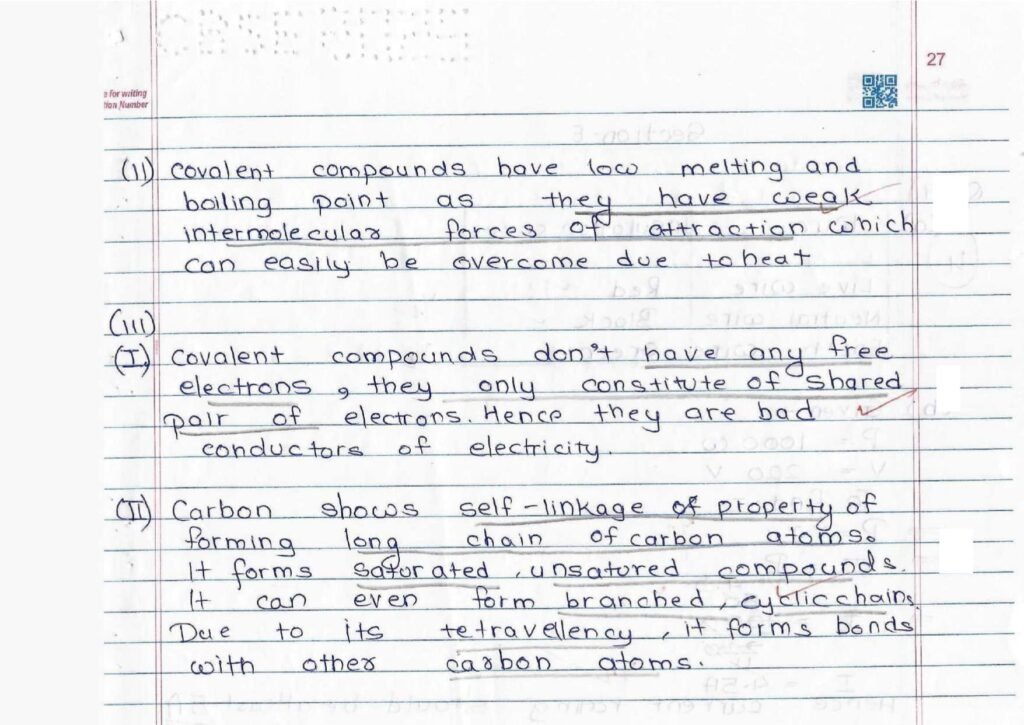 27
e for writing
tion Number
(II) Covalent compounds have low melting and
boiling point as they have weak
intermolecular forces of attraction which
can easily be overcome due to heat
(III)
(I) Covalent compounds don't have any free
electrons, they only constitute of shared
pair of electrons. Hence they are bad
conductors of electricity.
(II) Carbon shows self-linkage of property of
forming long chain of carbon atoms.
It forms saturated, unsatured compounds.
It can even form branched, cyclic chains.
Due to its tetravellency, it forms bonds
with other carbon atoms.